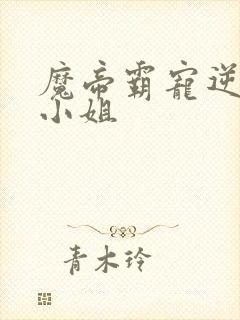 魔帝霸宠逆
小姐
青木玲